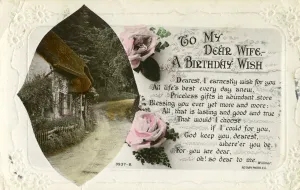 To My
Dear Wife
A Birthday Wish
Dearest, I earnestly wish for you
All life's best every day anew,
Priceless gifts in abundant store
Blessing you ever yet more and more:
All that is lasting and good and true
That would I choose
if I could for you.
God keep you, dearest,
where'er you be
For you are dear,
oh! so dear to me.